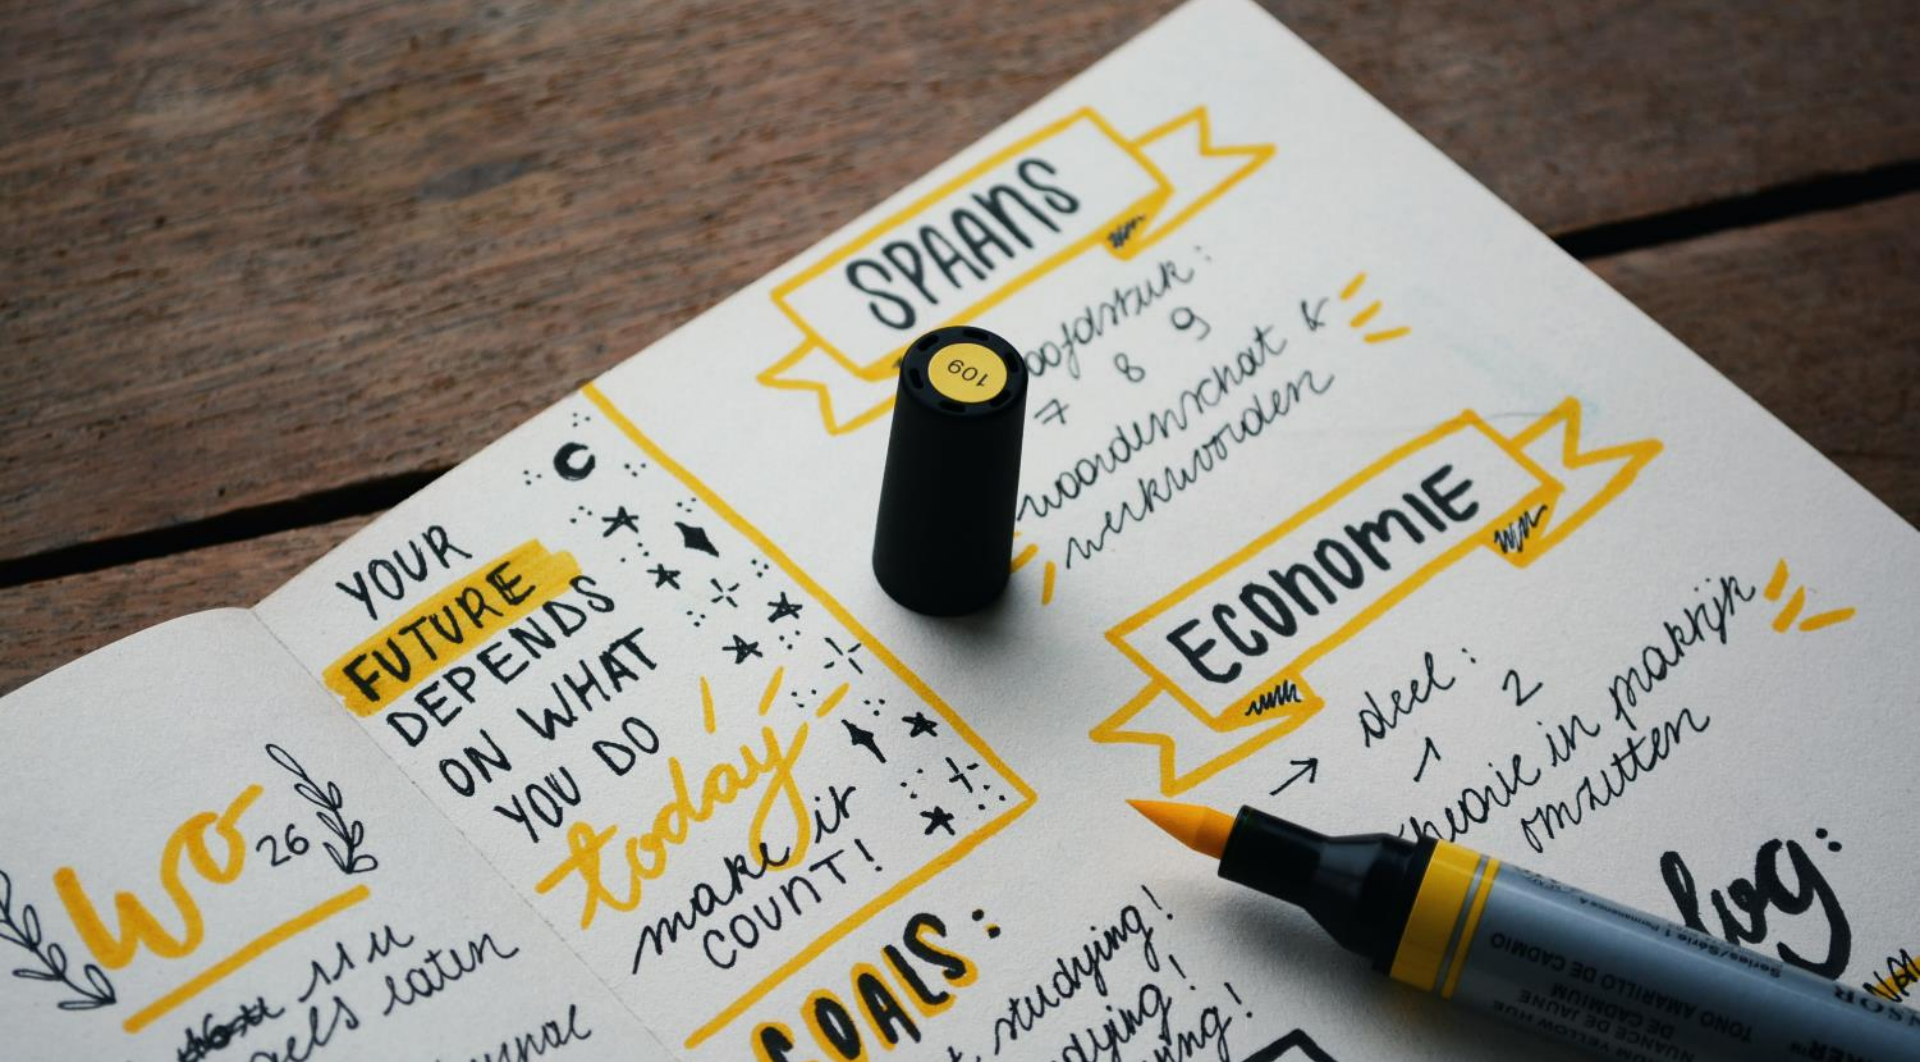 SPAANS
hoofdstuk:
7 8 9
woordenschat &
werkwoorden
109
ECONOMIE
→ deel:
1 2
theorie in praktijk
omzetten
YOUR
FUTURE
DEPENDS
ON WHAT
YOU DO
today
make it
COUNT!
wo
26
11 u
laten
GOALS:
studying!
log:
TONO AMARILLO DE CADMIO
NUANCE DE JAUNE
DE CADMIUM
YELLOW HUE